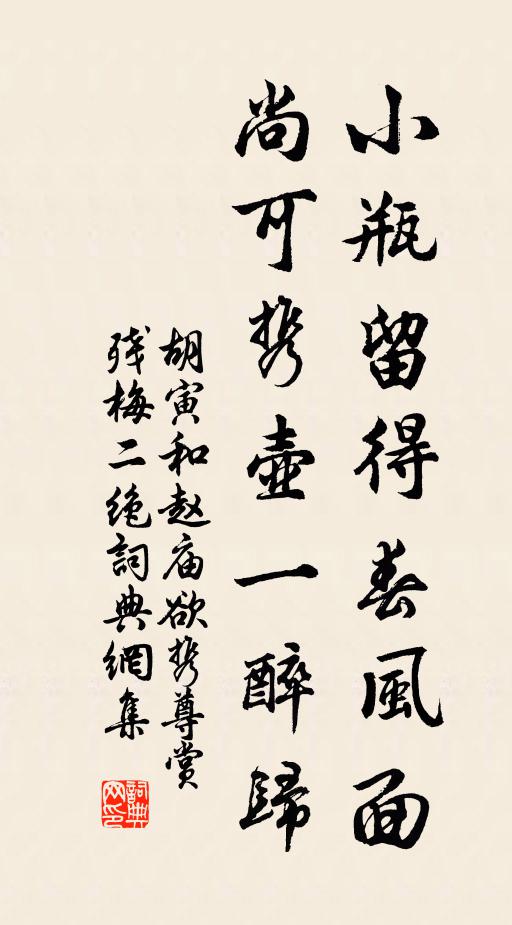 小瓶留得春風面
尚可携壺一醉歸
胡寅和赵庙欲携尊賞
残梅二绝詞典網集
詞典網印